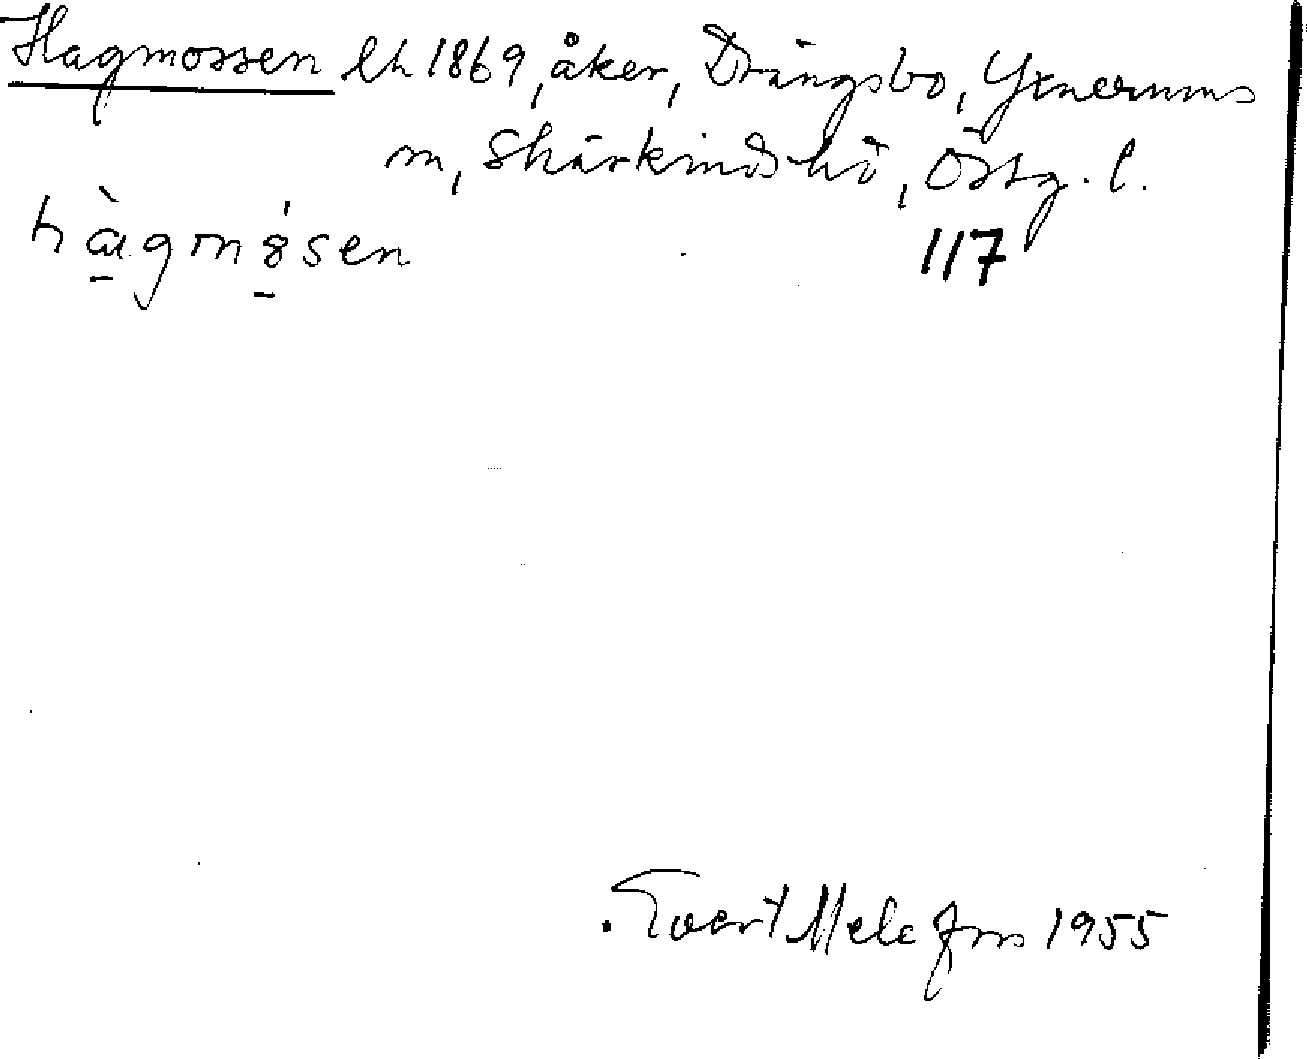 Hagmossen lh 1869, åker, Drängsbo, Yxnerums
sn, Skärkinds hd, Östg. l.
117
Evert Melefors 1955